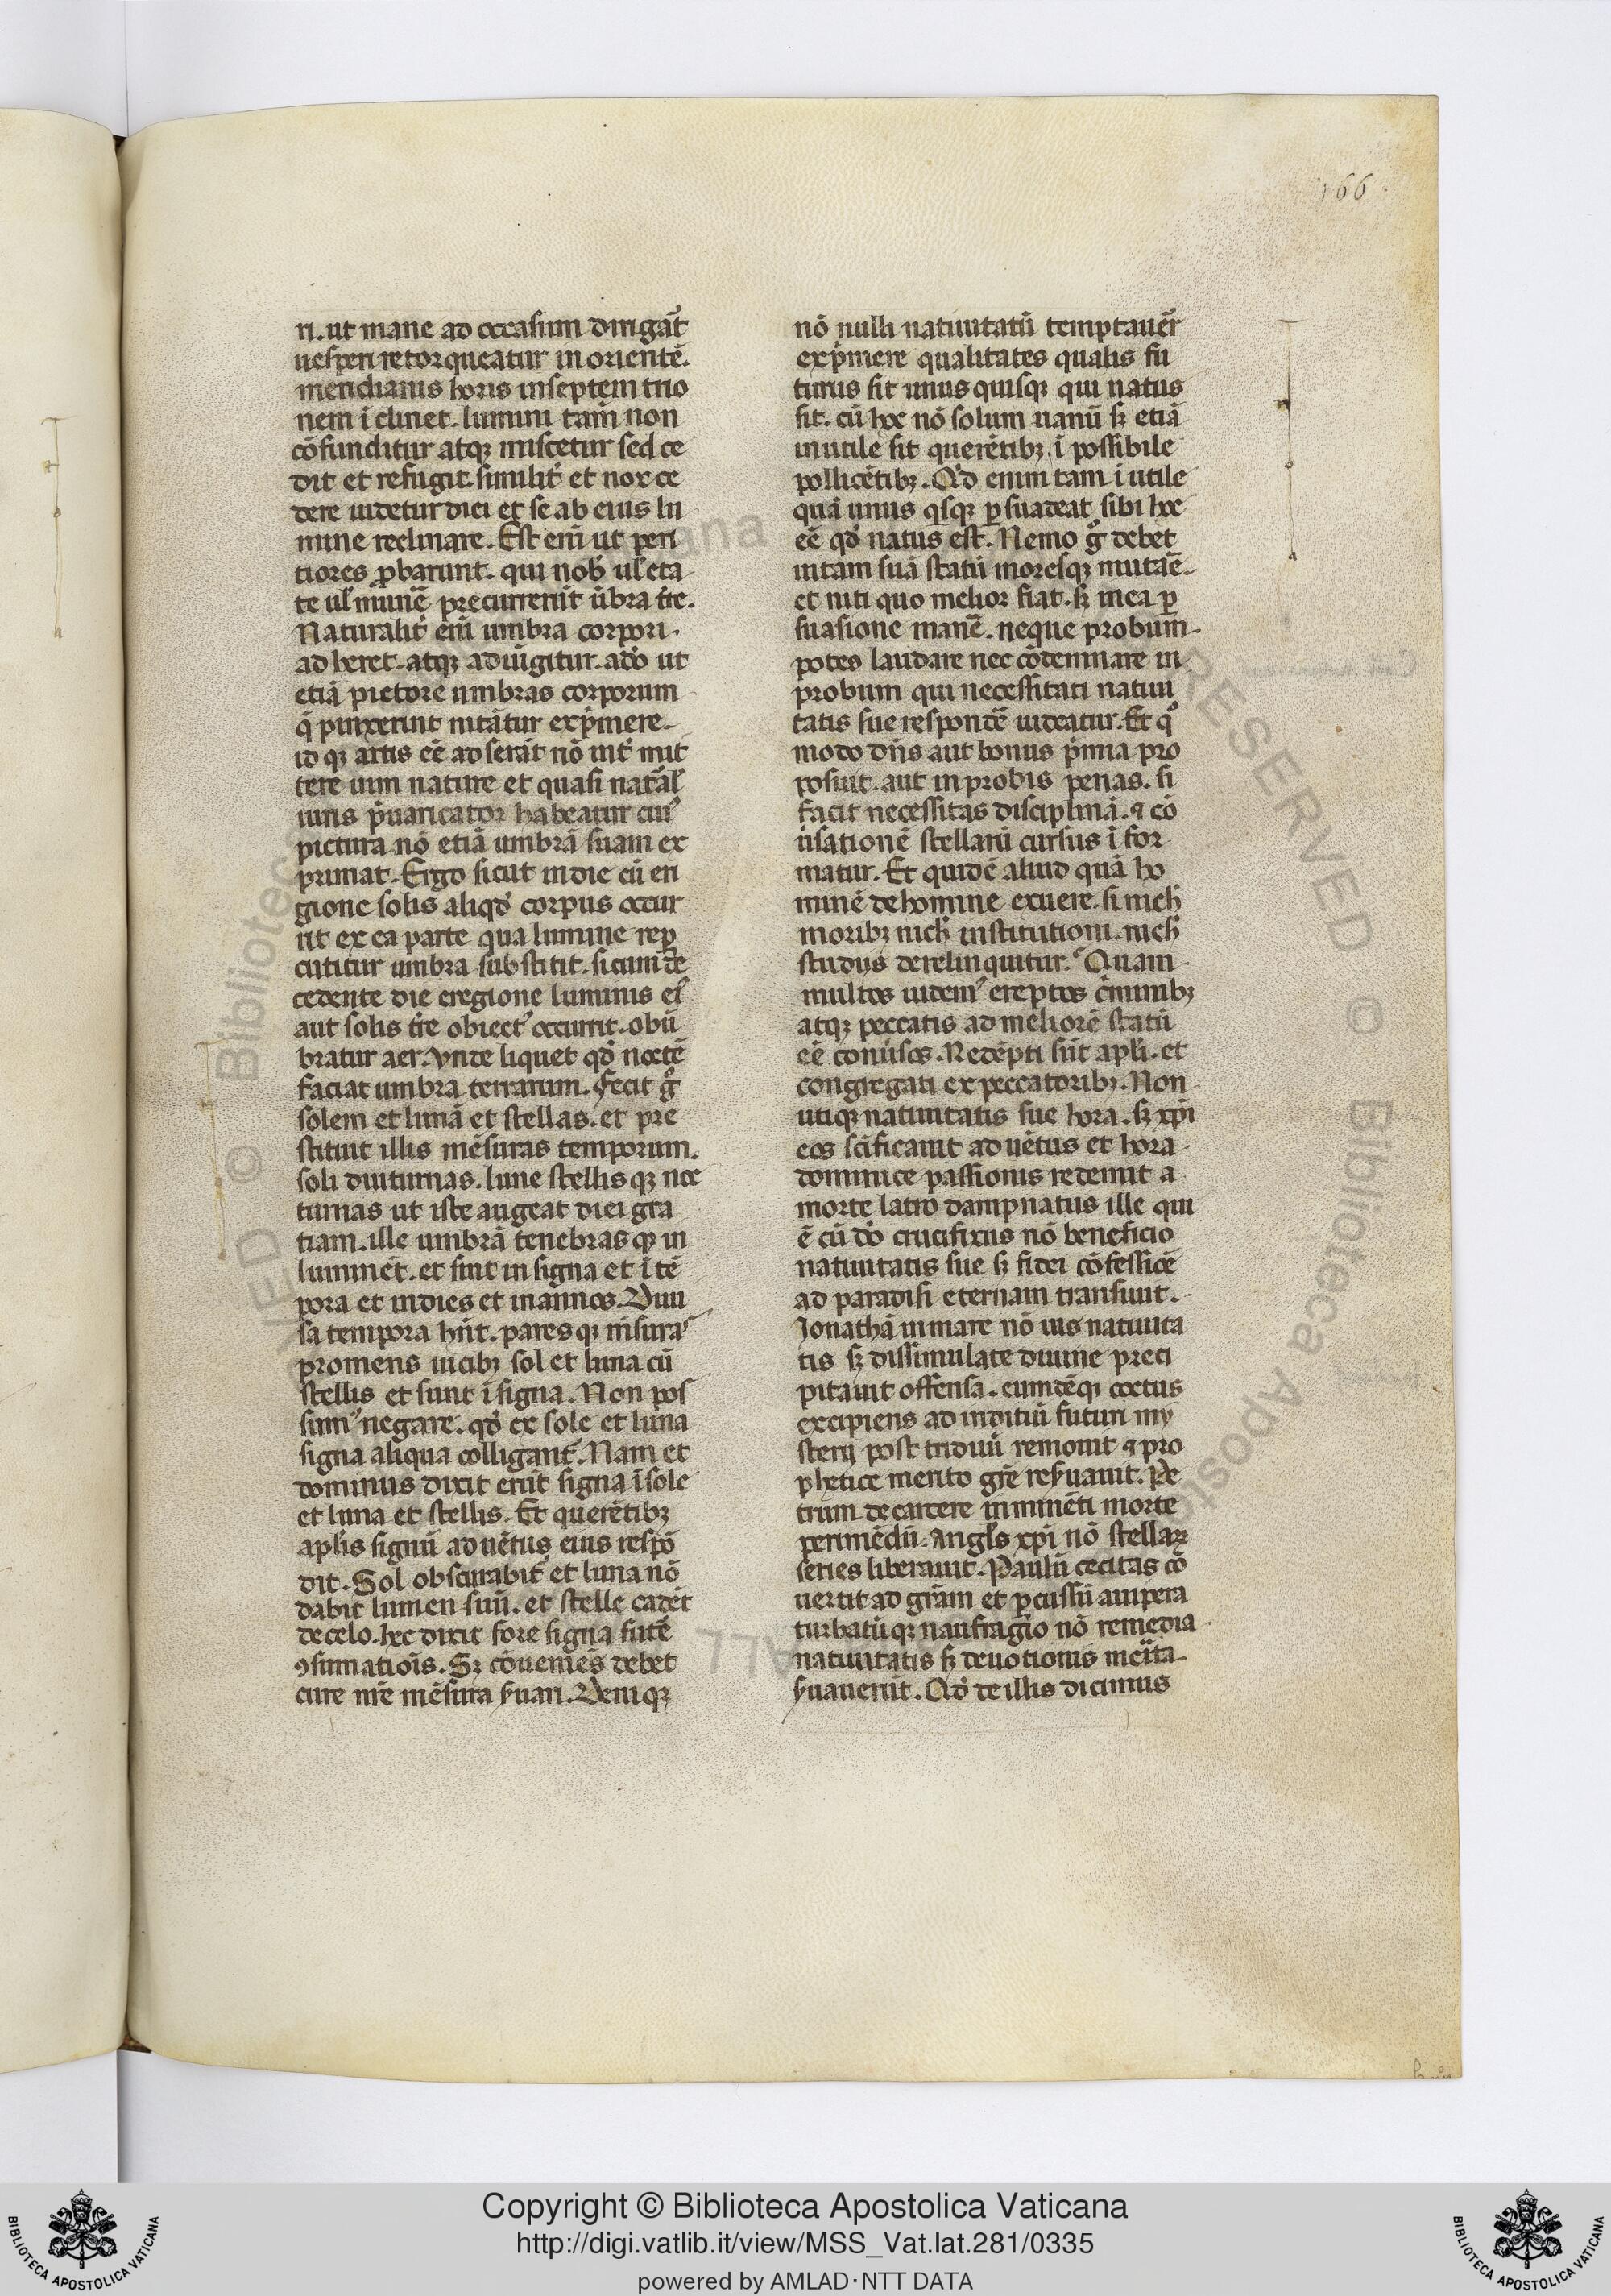 166
ri. ut mane ad occasum dirigat̄
uesperi retorqueatur in orientē.
meridianis horis in septem trio
nem ī clinet. lumini tam̄ non
cōfunditur atqꝫ miscetur sed ce
dit et refugit. similit̾ et nox ce
dere uidetur diei et se ab eius lu
mine reclinare. Est enī ut peri
tiores ꝓbarunt. qui nob̾ ul̾ eta
te ul̾ munē precurrerūt ūbra tr̄e.
Naturalit̾ enī umbra corpori.
ad heret. atqꝫ adiūgitur. adō ut
etiā pictore umbras corporum
q̄ pinxerint nitātur exp̄mere.
id qꝫ artis eē ad serāt nō int̾ mit
tere uim nature et quasi nat̄al̾
iuris p̄uaricator habeatur cui᷒
pictura nō etiā umbrā suam ex
primat. Ergo sicut in die cū e ri
gione solis aliqd̾ corpus occur
rit ex ea parte qua lumine reꝑ
cutitur umbra substitit. sic um de
cedente die e regione luminis ei᷒
aut solis tr̄e obiect᷒ occurrit. obū
bratur aer. Vnde liquet qd̾ noctē
faciat umbra terrarum. Fecit gͦ
solem et lunā et stellas. et pre
stituit illis mēsuras temporum.
soli diuturnas. lune stellis qꝫ noc
turnas ut iste augeat diei gra
tiam. ille umbrā tenebras qꝫ in
luminēt. et sint in signa et ī tē
pora et in dies et in annos. Diui
sa tempora hn̄t. pares qꝫ m̄sura᷒
promens uicibꝫ sol et luna cū
stellis et sunt ī signa. Non pos
sum᷒ negare. qd̾ ex sole et luna
signa aliqua colligant̾. Nam et
dominus dixit erūt signa ī sole
et luna et stellis. Et querētibꝫ
apl̾is signū aduētus eius respō
dit. Sol obscurabit̾ et luna nō
dabit lumen suū. et stelle cadēt
de celo. hec dixit fore signa futē
ꝯsumatiōis. Sꝫ cōueniēs debet
cure nr̄e mēsura ẜuari. Deniqꝫ
nō nulli natiuitatū temptauer̄
exp̄mere qualitates qualis fu
turus sit unus quisqꝫ qui natus
sit. cū hoc nō solum uanū sꝫ etiā
inutile sit querētibꝫ. ī possibile
pollicētibꝫ. Qd̾ enim tam ī utile
quā unus qͥsqꝫ ꝑsuadeat sibi hoc
eē qd̾ natus est. Nemo gͦ debet
uitam suā statū moresqꝫ mutāe.
et niti quo melior fiat. sꝫ in ea ꝑ
suasione manē. neque probum.
potes laudare nec cōdemnare in
probum qui necessitati natiui
tatis sue respondē uideatur. Et qͦ
modo dn̄s aut bonus p̄mia pro
posuit. aut in probis penas. si
facit necessitas disciplinā. ⁊ cō
ūsationē stellarū cursus ī for
matur. Et quidē aliud quā ho
minē de homine exuere. si nich̾
moribꝫ nich̾ institutioni. nich̾
studijs derelinquitur. Quam
multos uidem᷒ ereptos cͥminibꝫ
atqꝫ peccatis ad meliorē statū
eē conūsos. Redēpti sūt apl̾i. et
congregati ex peccatoribꝫ. Non
utiqꝫ natiuitatis sue hora. sꝫ xp̄i
eos sc̄ificauit aduētus et hora
dominice passionis redemit a
morte latro dampnatus ille qui
ē cū dō crucifixus nō beneficio
natiuitatis sue sꝫ fidei cōfessiōē
ad paradisi eternam transiuit.
Jonathā in mare nō uis natiuita
tis sꝫ dissimulate diuine preci
pitauit offensa. eumdēqꝫ coetus
excipiens ad inditiū futuri my
sterij post triduū remouit ⁊ pro
phetice merito gr̄e reẜuauit. Pe
trum de carcere in minēti morte
perimēdū. Angl̾s xp̄i nō stellaꝝ
series liberauit. Paulū cecitas cō
uertit ad gr̄am et ꝑcussū a uipera
turbatūqꝫ naufragio nō remedia
natiuitatis sꝫ deuotionis merita
ẜuauerūt. Qd̾ de illis dicimus
Copyright © Biblioteca Apostolica Vaticana
http://digi.vatlib.it/view/MSS_Vat.lat.281/0335
powered by AMLAD·NTT DATA
BIBLIOTECA APOSTOLICA VATICANA
BIBLIOTECA APOSTOLICA VATICANA